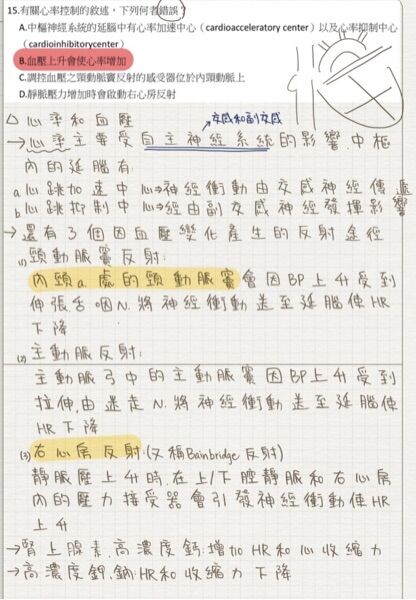 15.有關心率控制的敘述，下列何者錯誤？
A.中樞神經系統的延腦中有心率加速中心（cardioacceleratory center）以及心率抑制中心
（cardioinhibitorycenter）
B.血壓上升會使心率增加
C.調控血壓之頸動脈竇反射的感受器位於內頸動脈上
D.靜脈壓力增加時會啟動右心房反射
心率和血壓
交感和副交感
→心率主要受自主神經系統的影響,中樞
內的延腦有:
a心跳加速中心⇒神經衝動由交感神經傳遞
b心跳抑制中心⇒經由副交感神經發揮影響
→還有3個因血壓變化產生的反射途徑
(1)頸動脈竇反射:
內頸a.處的頸動脈竇會因BP上升受到
伸張舌咽N.將神經衝動送至延腦使HR
下降
(2)主動脈反射:
主動脈弓中的主動脈竇因BP上升受到
拉伸,由迷走N.將神經衝動送至延腦使
HR下降
(3)右心房反射:(又稱Bainbridge反射)
靜脈壓上升時,在上/下腔靜脈和右心房
內的壓力接受器會引發神經衝動使HR
上升
→腎上腺素.高濃度鈣:增加HR和心收縮力
→高濃度鉀,鈉:HR和收縮力下降